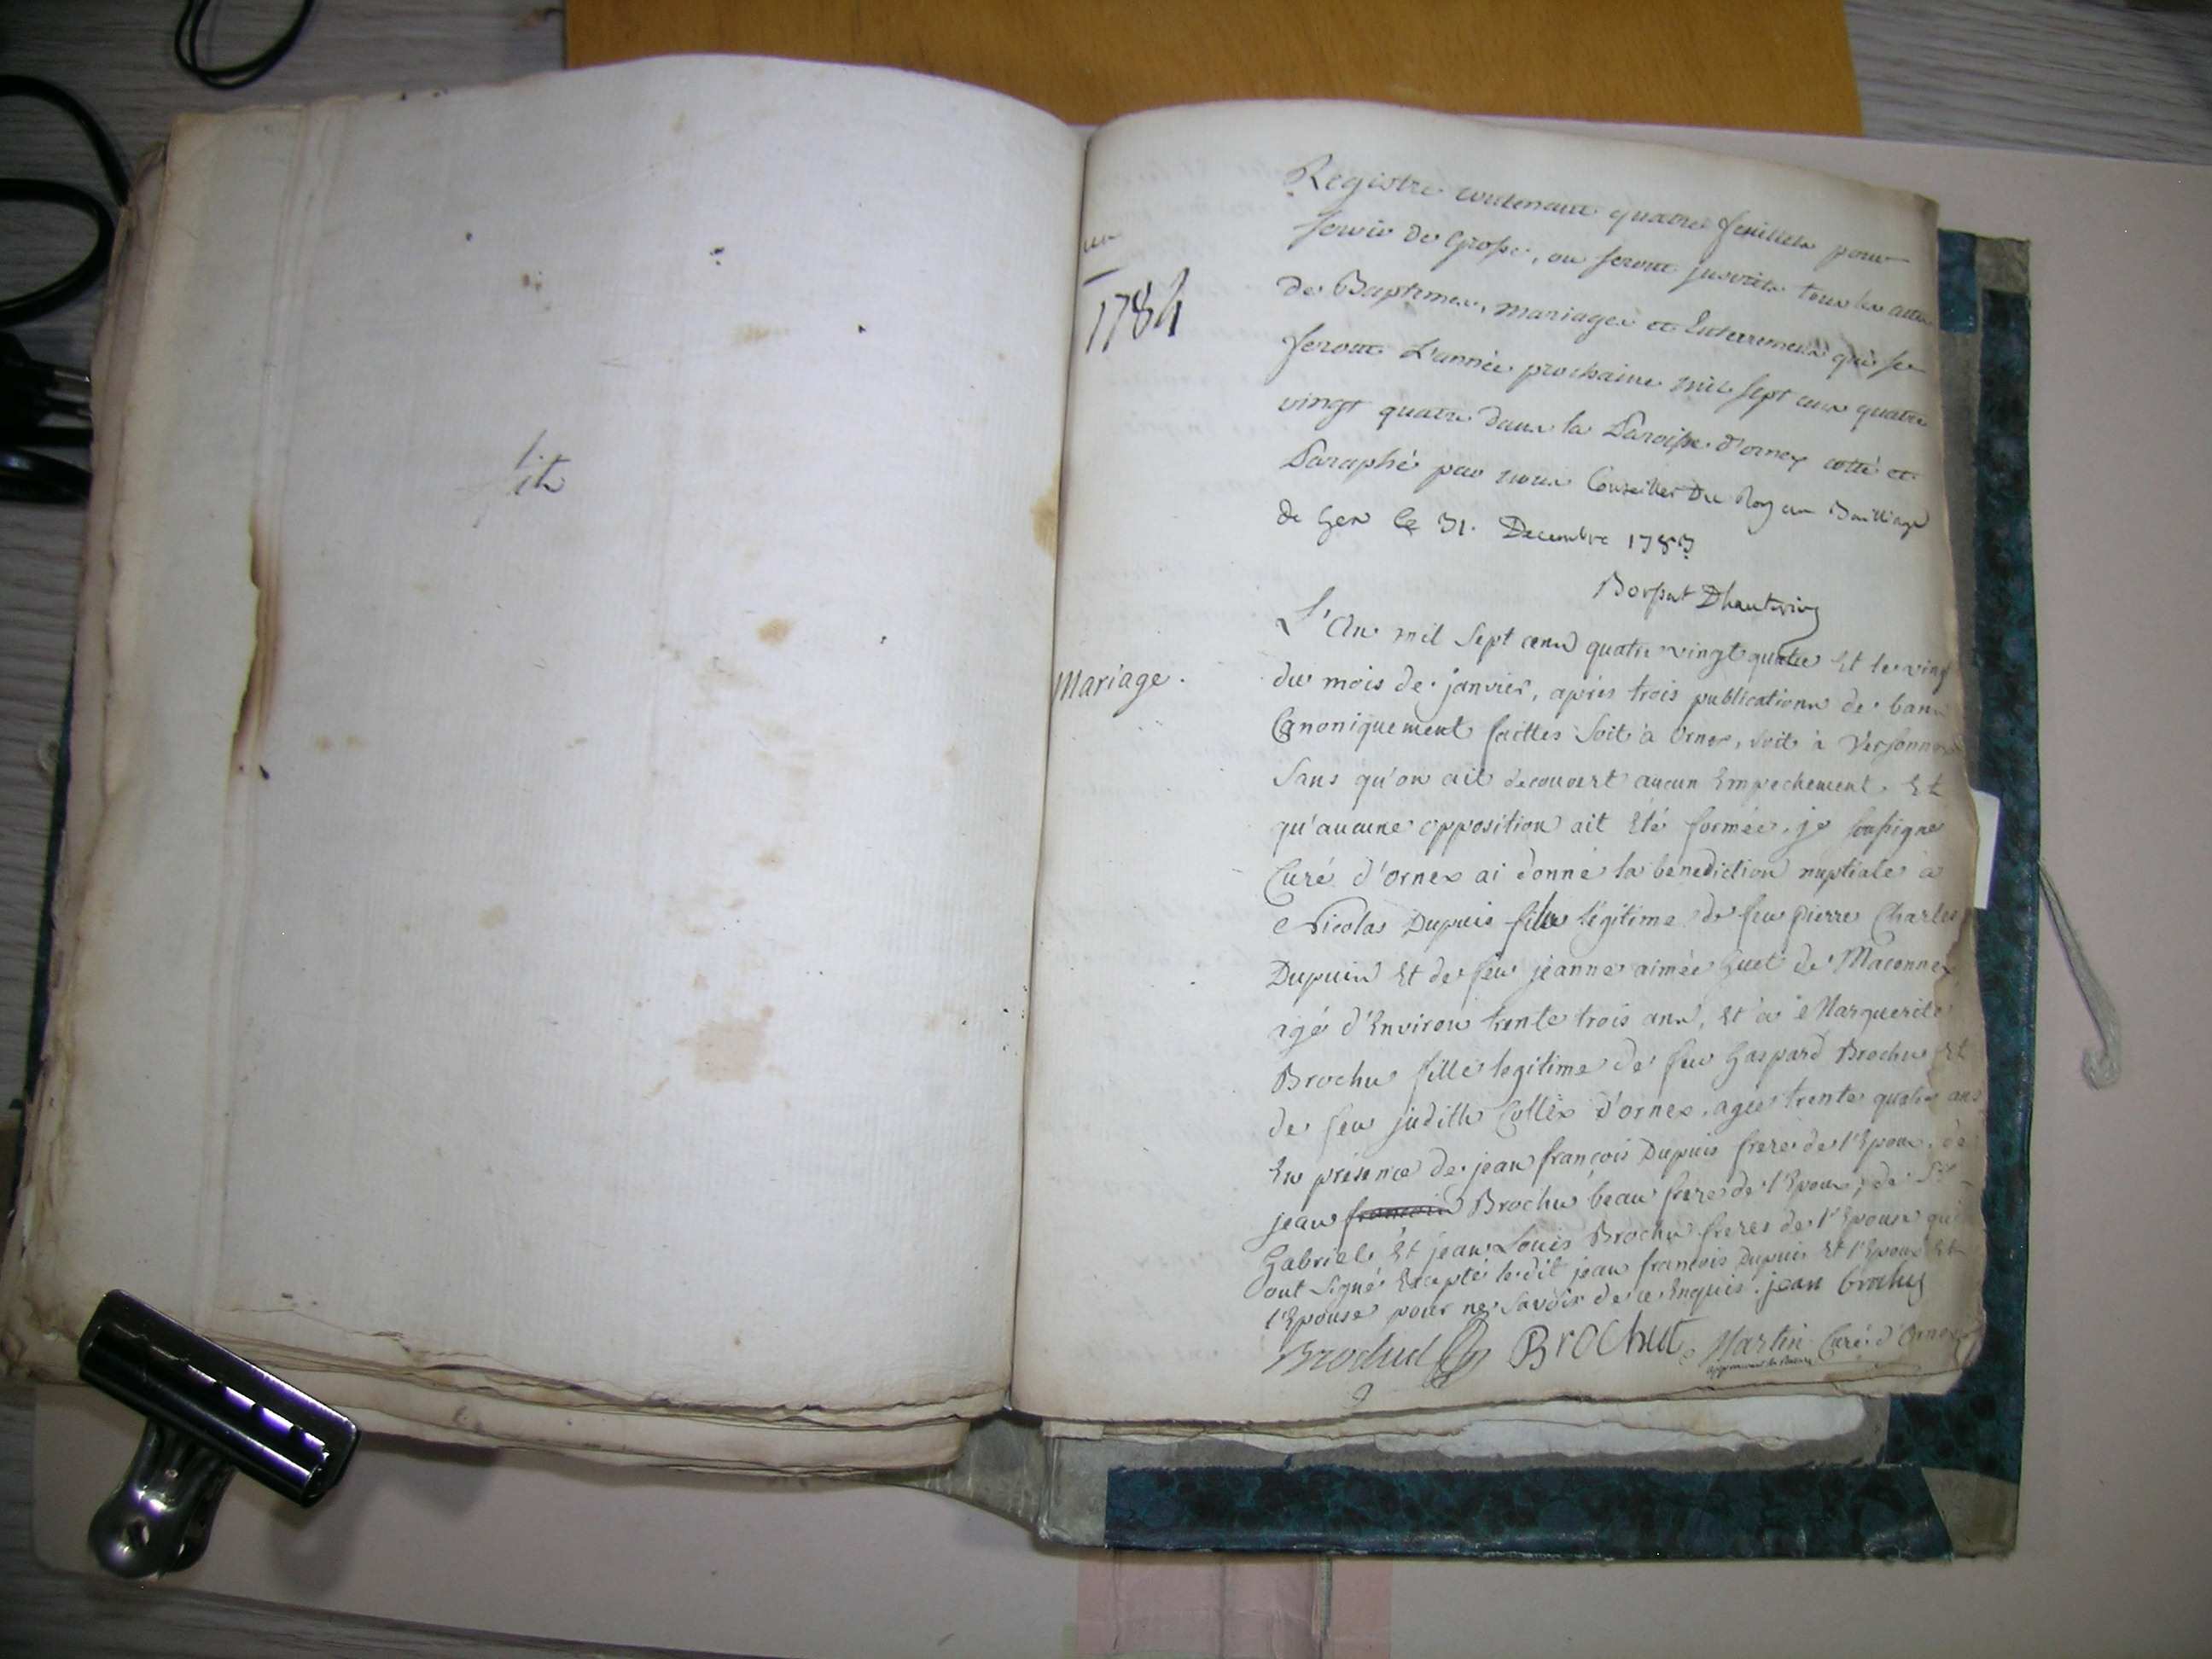 un
1784
Registre contenant quatre feuillets pour
servir de Grosse, ou seront inscrits tous les actes
de Baptemes, mariages et Enterremens qui se
feront L'année prochaine mil sept cens quatre
vingt quatre dans la Paroisse d'ornex cotté et
Paraphé par nous Conseiller Du Roy au Bailliage
de Gex le 31. Decembre 1783
Mariage.
L'An mil Sept cens quatre vingt quatre Et le vingt
du mois de janvier, après trois publications de bans
Canoniquement faittes Soit à Ornex, soit à Versonnex
Sans qu'on ait decouvert aucun Empechement Et
qu'aucune opposition ait Eté formée, je soussigné
Curé d'Ornex ai donné la benediction nuptiale à
Nicolas Dupuis fils légitime de feu pierre Charles
Dupuis Et de feu jeanne aimée Guet de Maconnex
agé d'Environ trente trois ans, Et à Marguerite
Brochu fille legitime de feu Gaspard Brochu Et
de feu judith Collex d'ornex, agée trente quatre ans
En présence de jean françois Dupuis frere de l'Epoux, de
jean francois Brochu beau frere de l'Epoux, de Sr
Gabriel Et jean Louis Brochu freres de l'Epouse qui
ont signé Excepté ledit jean francois Dupuis Et l'Epoux Et
l'Epouse pour ne savoir de ce Enquis. jean brochu
Brochut Brochut Martin Curé d'Ornex